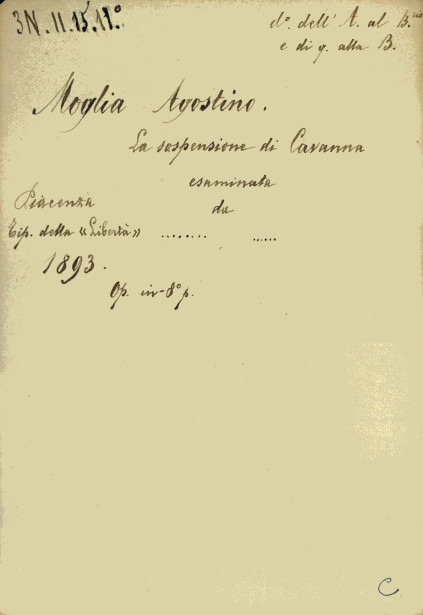 3N.II.15.11.º
dº. dell' A. al B.rio
e di q. alla B.
Moglia Agostino.
La sospensione di Cavanna
esaminata
da
Piacenza
Tip. della «Libertà» ........ ......
1893.
Op. in-8º p.
C